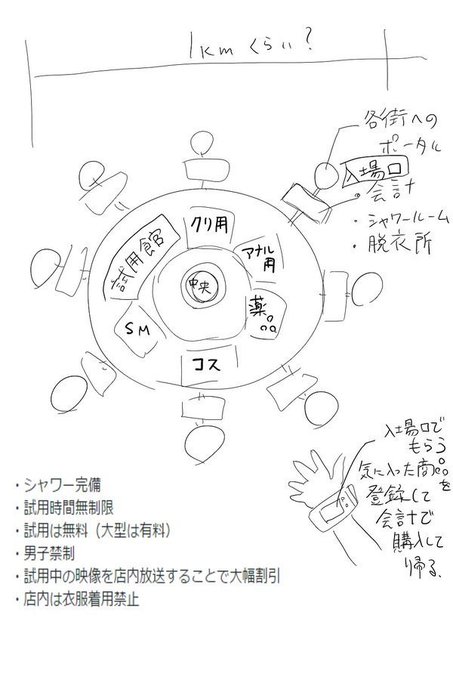 1kmくらい?
各街への
ポータル
入場口
・会計
・シャワールーム
・脱衣所
クリ用
試用館
アナル用
中央
薬品
SM
コス
入場口で
もらう
気に入った商品を
登録して
会計で
購入して
帰る。
・シャワー完備
・試用時間無制限
・試用は無料（大型は有料）
・男子禁制
・試用中の映像を店内放送することで大幅割引
・店内は衣服着用禁止